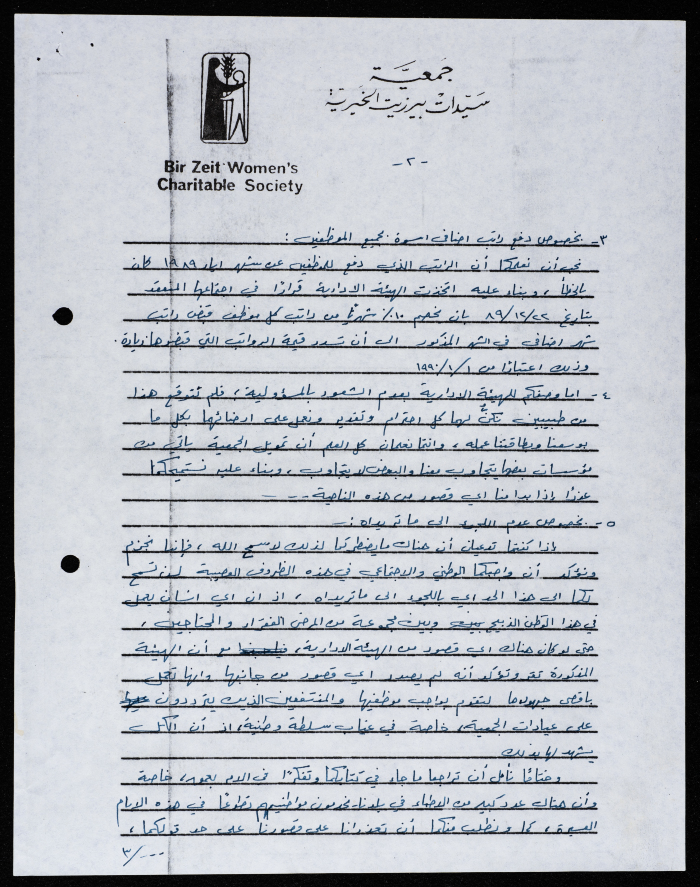 جمعية
سيدات بيرزيت الخيرية
Bir Zeit Women's
Charitable Society
-٢-
٣- بخصوص دفع راتب اضافي اسوة بجميع الموظفين :
نحب أن نعلمكما أن الراتب الذي دفع للموظفين عن شهر ايار ١٩٨٩ كان
بالخطأ ، وبناء عليه اتخذت الهيئة الادارية قرارًا في اجتماعها المنعقد
بتاريخ ٨٩/١٢/٢٢ بان يخصم ١٠٪ شهريًا من راتب كل موظف قبض راتب
شهر اضافي في الشهر المذكور الى أن تسدد قيمة الرواتب التي قبضوها زيادة .
وذلك اعتبارًا من ١٩٩٠/١/١
٤- اما وصفكم للهيئة الادارية بعدم الشعور بالمسؤولية ، فلم نتوقع هذا
من طبيبين نكنّ لهما كل احترام وتقدير ونعمل على ارضائهما بكل ما
بوسعنا وبطاقتنا عمله ، وانتما تعلمان كل العلم أن تمويل الجمعية يأتي من
مؤسسات بعضها يتجاوب معنا والبعض لا يتجاوب ، وبناء عليه نستميحكما
عذرًا إذا بدا منا اي قصور من هذه الناحية ---
٥- بخصوص عدم اللجوء الى ما تريداه :-
إذا كنتما تدعيان أن هناك ما يضطركما لذلك لا سمح الله ، فإننا نجزم
ونؤكد أن واجبكما الوطني والاجتماعي في هذه الظروف العصيبة لن يسمح
لكما الى هذا الحد اي باللجوء الى ما تريداه ، اذ ان اي انسان يعمل
في هذا الوطن الذبيح وبين مجموعة من المرضى الفقراء والمحتاجين ،
حتى لو كان هناك اي قصور من الهيئة الادارية ، مع أن الهيئة
المذكورة تقر وتؤكد أنه لم يصدر اي قصور من جانبها وانها تعمل
باقصى جهودها لتقوم بواجب موظفيها والمنتفعين الذين يترددون
على عيادات الجمعية ، خاصة في غياب سلطة وطنية ، اذ أن الكل
يشهد لها بذلك
وختامًا نأمل أن تراجعا ما جاء في كتابكما وتفكرا في الامر بعمق ، خاصة
وأن هناك عدد كبير من الاطباء في بلدنا يخدمون مواطنيهم تطوعًا في هذه الايام
العسيرة ، كما ونطلب منكما أن تعذرانا على قصورنا على حد قولكما ،
٣/---